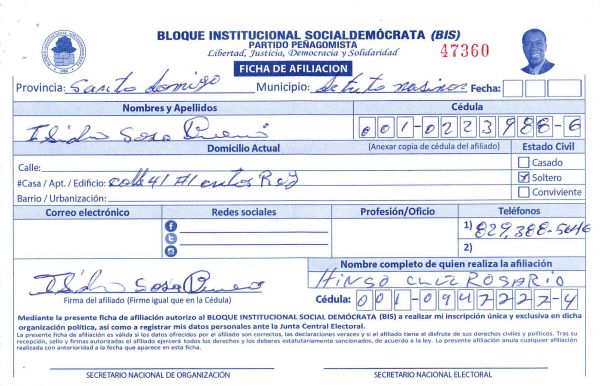 BLOQUE INSTITUCIONAL SOCIALDEMÓCRATA (BIS)
PARTIDO PEÑAGOMISTA
Libertad, Justicia, Democracia y Solidaridad
47360
FICHA DE AFILIACION
Provincia: Santo domingo Municipio: Fecha:
Nombres y Apellidos Cédula
Isidro Sosa 001-0223988-6
Domicilio Actual (Anexar copia de cédula del afiliado) Estado Civil
Calle: Casado
#Casa / Apt. / Edificio: calle 41 # Soltero
Barrio / Urbanización: Conviviente
Correo electrónico Redes sociales Profesión/Oficio Teléfonos
1) 829,388-5646
2)
Nombre completo de quien realiza la afiliación
Isidro Sosa ROSARIO
Firma del afiliado (Firme igual que en la Cédula) Cédula: 001-0947227-4
Mediante la presente ficha de afiliación autorizo al BLOQUE INSTITUCIONAL SOCIAL DEMÓCRATA (BIS) a realizar mi inscripción única y exclusiva en dicha
organización política, así como a registrar mis datos personales ante la Junta Central Electoral.
La presente ficha de afiliación es válida si los datos ofrecidos por el afiliado son correctos, las declaraciones veraces y si el afiliado tiene el disfrute de sus derechos civiles y políticos. Tras su
recepción, sello y firmas autorizadas el afiliado ejercerá todos los derechos y los deberes estatutariamente sancionados, de acuerdo a la ley. La presente afiliación anula cualquier afiliación
realizada con anterioridad a la fecha que aparece en esta ficha.
SECRETARIO NACIONAL DE ORGANIZACIÓN SECRETARIO NACIONAL ELECTORAL